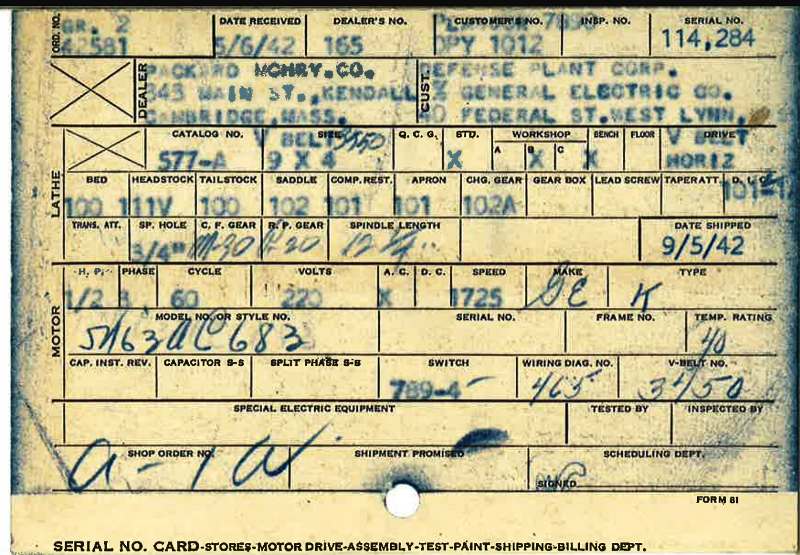 ORD. NO. GR. 2 DATE RECEIVED DEALER'S NO. CUSTOMER'S NO. INSP. NO. SERIAL NO.
42581 5/6/42 165 DPY 1012 114,284
DEALER PACKARD MCHRY.CO. CUST. DEFENSE PLANT CORP.
343 MAIN ST.,KENDALL % GENERAL ELECTRIC CO.
CAMBRIDGE,MASS. FEDERAL ST.WEST LYNN,
LATHE CATALOG NO. V BELT SIZE 3450 Q. C. G. STD. WORKSHOP BENCH FLOOR DRIVE V BELT
A B C
577-A 9 X 4 X X X HORIZ
BED HEADSTOCK TAILSTOCK SADDLE COMP. REST. APRON CHG. GEAR GEAR BOX LEAD SCREW TAPER ATT.
100 111V 100 102 101 101 102A
TRANS. ATT. SP. HOLE C. F. GEAR R. P. GEAR SPINDLE LENGTH DATE SHIPPED
3/4" 20 12 1/4" 9/5/42
MOTOR H. P. PHASE CYCLE VOLTS A. C. D. C. SPEED MAKE TYPE
1/2 3 60 220 X 1725 GE K
MODEL NO. OR STYLE NO. SERIAL NO. FRAME NO. TEMP. RATING
5K63AC683 40
CAP. INST. REV. CAPACITOR S-S SPLIT PHASE S-S SWITCH WIRING DIAG. NO. V-BELT NO.
789-4 465 3450
SPECIAL ELECTRIC EQUIPMENT TESTED BY INSPECTED BY
SHOP ORDER NO. SHIPMENT PROMISED SCHEDULING DEPT.
a-1a
SIGNED
FORM 81
SERIAL NO. CARD-STORES-MOTOR DRIVE-ASSEMBLY-TEST-PAINT-SHIPPING-BILLING DEPT.